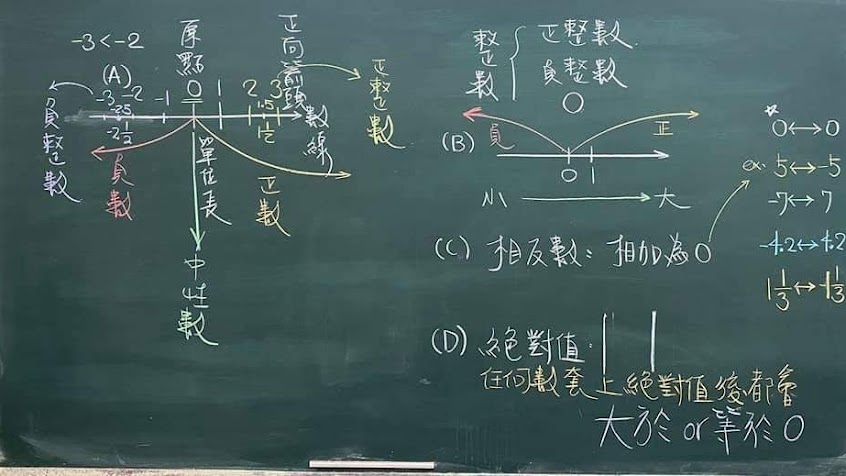 -3<-2
(A)
原點
正向箭頭
數線
正整數
負整數
-3 -2.5 -2 -1 0 1 2 3
-2 1/2
1.5
1 1/2
負數
單位長
正數
中性數
整數 { 正整數
負整數
0
(B)
負
正
0 1
小 → 大
(C) 相反數: 相加為0
☆ 0↔0
ex. 5↔-5
-7↔7
-4.2↔4.2
1 1/3↔-1 1/3
(D) 絕對值: | |
任何數套上絕對值後都會
大於or等於0